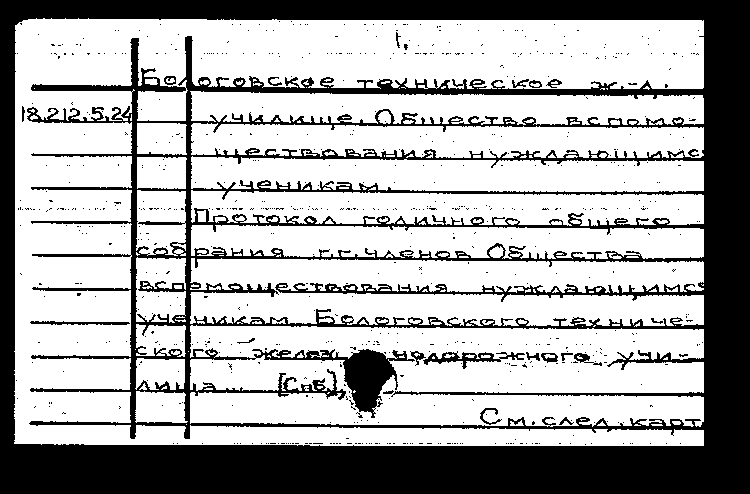 1.
Бологовское техническое ж.-д.
18.212.5.24 училище. Общество вспомо-
ществования нуждающимся
ученикам.
Протокол годичного общего
собрания г.г. членов Общества
вспомоществования нуждающимся
ученикам Бологовского техниче-
ского железнодорожного учи-
лища... [Спб.],
См. след. карт.